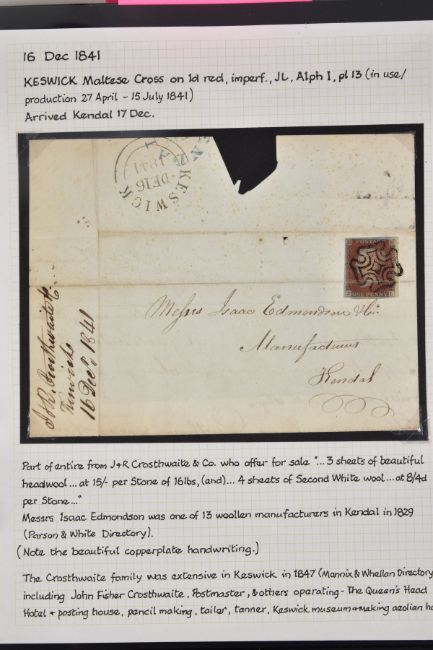 16 Dec 1841
KESWICK Maltese Cross on 1d red, imperf., JL, Alph I, pl 13 (in use/
production 27 April - 15 July 1841)
Arrived Kendal 17 Dec.
KESWICK
DE 16
1841
POSTAGE
ONE PENNY
Messrs Isaac Edmondson & Co.
Manufacturers
Kendal
J & R. Crosthwaite & Co
Keswick
16 Decr 1841
Part of entire from J+R Crosthwaite & Co. who offer for sale "... 3 sheets of beautiful
headwool ... at 15/- per Stone of 16lbs, (and)... 4 sheets of Second White wool ... at 8/4d
per Stone..."
Messrs Isaac Edmondson was one of 13 woollen manufacturers in Kendal in 1829
(Parson & White Directory).
(Note the beautiful copperplate handwriting.)
The Crosthwaite family was extensive in Keswick in 1847 (Mannix & Whellan Directory
including John Fisher Crosthwaite, Postmaster, & others operating - The Queen's Head
Hotel + posting house, pencil making, tailor, tanner, Keswick museum + making aeolian ha